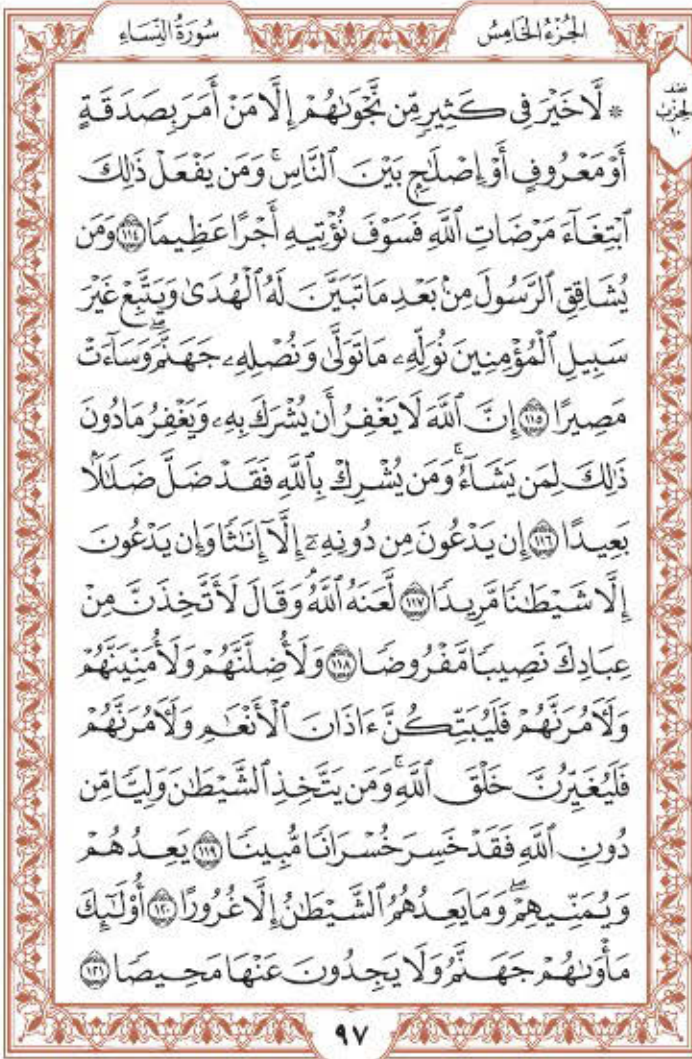 سُورَةُ النِّسَاءِ
الجُزْءُ الخَامِسُ
نصف
الحزب
١٠
۞ لَّا خَيْرَ فِى كَثِيرٍ مِّن نَّجْوَىٰهُمْ إِلَّا مَنْ أَمَرَ بِصَدَقَةٍ
أَوْ مَعْرُوفٍ أَوْ إِصْلَٰحٍۭ بَيْنَ ٱلنَّاسِۚ وَمَن يَفْعَلْ ذَٰلِكَ
ٱبْتِغَآءَ مَرْضَاتِ ٱللَّهِ فَسَوْفَ نُؤْتِيهِ أَجْرًا عَظِيمًا ١١٤ وَمَن
يُشَاقِقِ ٱلرَّسُولَ مِنۢ بَعْدِ مَا تَبَيَّنَ لَهُ ٱلْهُدَىٰ وَيَتَّبِعْ غَيْرَ
سَبِيلِ ٱلْمُؤْمِنِينَ نُوَلِّهِۦ مَا تَوَلَّىٰ وَنُصْلِهِۦ جَهَنَّمَۖ وَسَآءَتْ
مَصِيرًا ١١٥ إِنَّ ٱللَّهَ لَا يَغْفِرُ أَن يُشْرَكَ بِهِۦ وَيَغْفِرُ مَا دُونَ
ذَٰلِكَ لِمَن يَشَآءُۚ وَمَن يُشْرِكْ بِٱللَّهِ فَقَدْ ضَلَّ ضَلَٰلًۢا
بَعِيدًا ١١٦ إِن يَدْعُونَ مِن دُونِهِۦٓ إِلَّآ إِنَٰثًا وَإِن يَدْعُونَ
إِلَّا شَيْطَٰنًا مَّرِيدًا ١١٧ لَّعَنَهُ ٱللَّهُۘ وَقَالَ لَأَتَّخِذَنَّ مِنْ
عِبَادِكَ نَصِيبًا مَّفْرُوضًا ١١٨ وَلَأُضِلَّنَّهُمْ وَلَأُمَنِّيَنَّهُمْ
وَلَـَٔامُرَنَّهُمْ فَلَيُبَتِّكُنَّ ءَاذَانَ ٱلْأَنْعَٰمِ وَلَـَٔامُرَنَّهُمْ
فَلَيُغَيِّرُنَّ خَلْقَ ٱللَّهِۚ وَمَن يَتَّخِذِ ٱلشَّيْطَٰنَ وَلِيًّا مِّن
دُونِ ٱللَّهِ فَقَدْ خَسِرَ خُسْرَانًا مُّبِينًا ١١٩ يَعِدُهُمْ
وَيُمَنِّيهِمْۖ وَمَا يَعِدُهُمُ ٱلشَّيْطَٰنُ إِلَّا غُرُورًا ١٢٠ أُو۟لَٰٓئِكَ
مَأْوَىٰهُمْ جَهَنَّمُ وَلَا يَجِدُونَ عَنْهَا مَحِيصًا ١٢١
٩٧